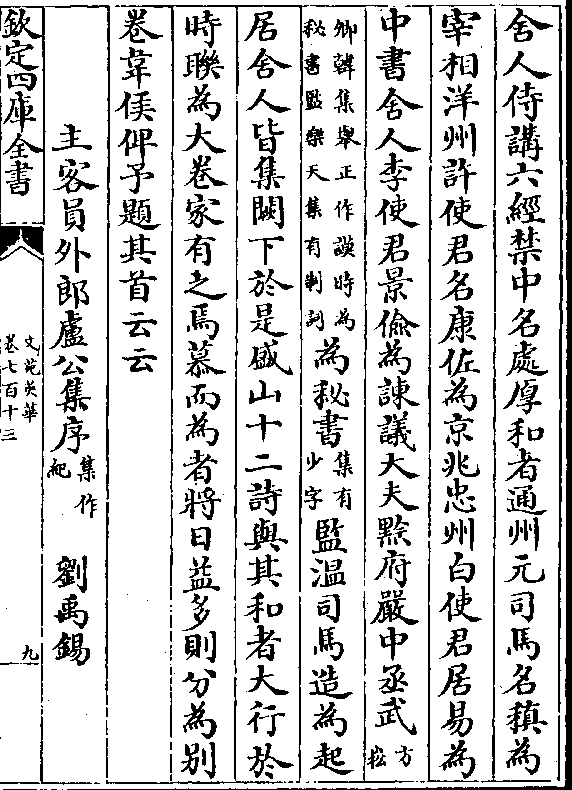 舍人侍講六經禁中名處厚和者通州元司馬名稹為
宰相洋州許使君名康佐為京兆忠州白使君居易為
中書舍人李使君景儉為諫議大夫黔府嚴中丞武方崧
卿韓集舉正作謨時為秘書監樂天集有制詞為秘書集有少字監溫司馬造為起
居舍人皆集闕下於是盛山十二詩與其和者大行於
時聯為大卷家有之焉慕而為者將日益多則分為別
卷韋侯俾予題其首云云
主客員外郎盧公集序集作紀 劉禹錫
欽定四庫全書
文苑英華
卷七百十三
九